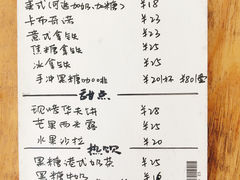 美式(可选加奶.加糖) ¥18
卡布奇诺 ¥23
意式拿铁 ¥23
焦糖拿铁 ¥25
冰拿铁 ¥25
手冲黑糖咖啡 ¥20/杯 ¥80/壶
甜点
现烤华夫饼 ¥28
芒果西米露 ¥25
水果沙拉 ¥20
热饮
黑糖港式奶茶 ¥25
黑糖牛奶 ¥16